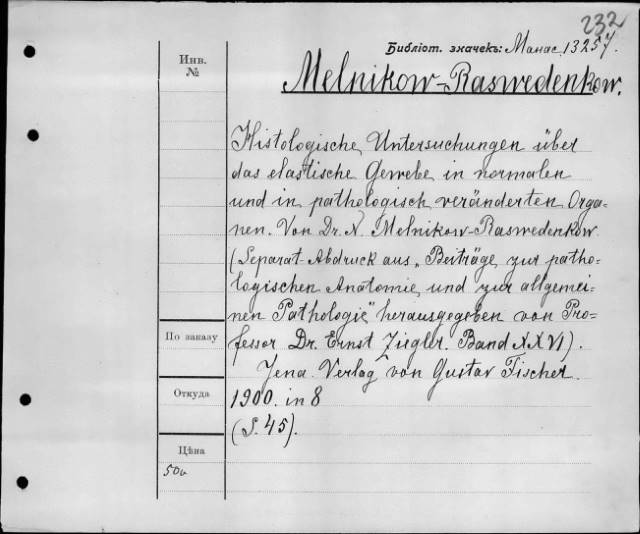 232
Библіот. значекъ: Манас. 13257.
Инв.
№
Melnikow-Raswedenkow.
Histologische Untersuchungen über
das elastische Gewebe in normalen
und in pathologisch veränderten Orga-
nen. Von Dr. N. Melnikow-Raswedenkow.
(Separat-Abdruck aus „Beiträge zur patho-
logischen Anatomie und zur allgemei-
nen Pathologie" herausgegeben von Pro-
По заказу
fessor Dr. Ernst Ziegler. Band XXVI).
Jena. Verlag von Gustav Fischer.
Откуда
1900. in 8
(S. 45).
Цѣна